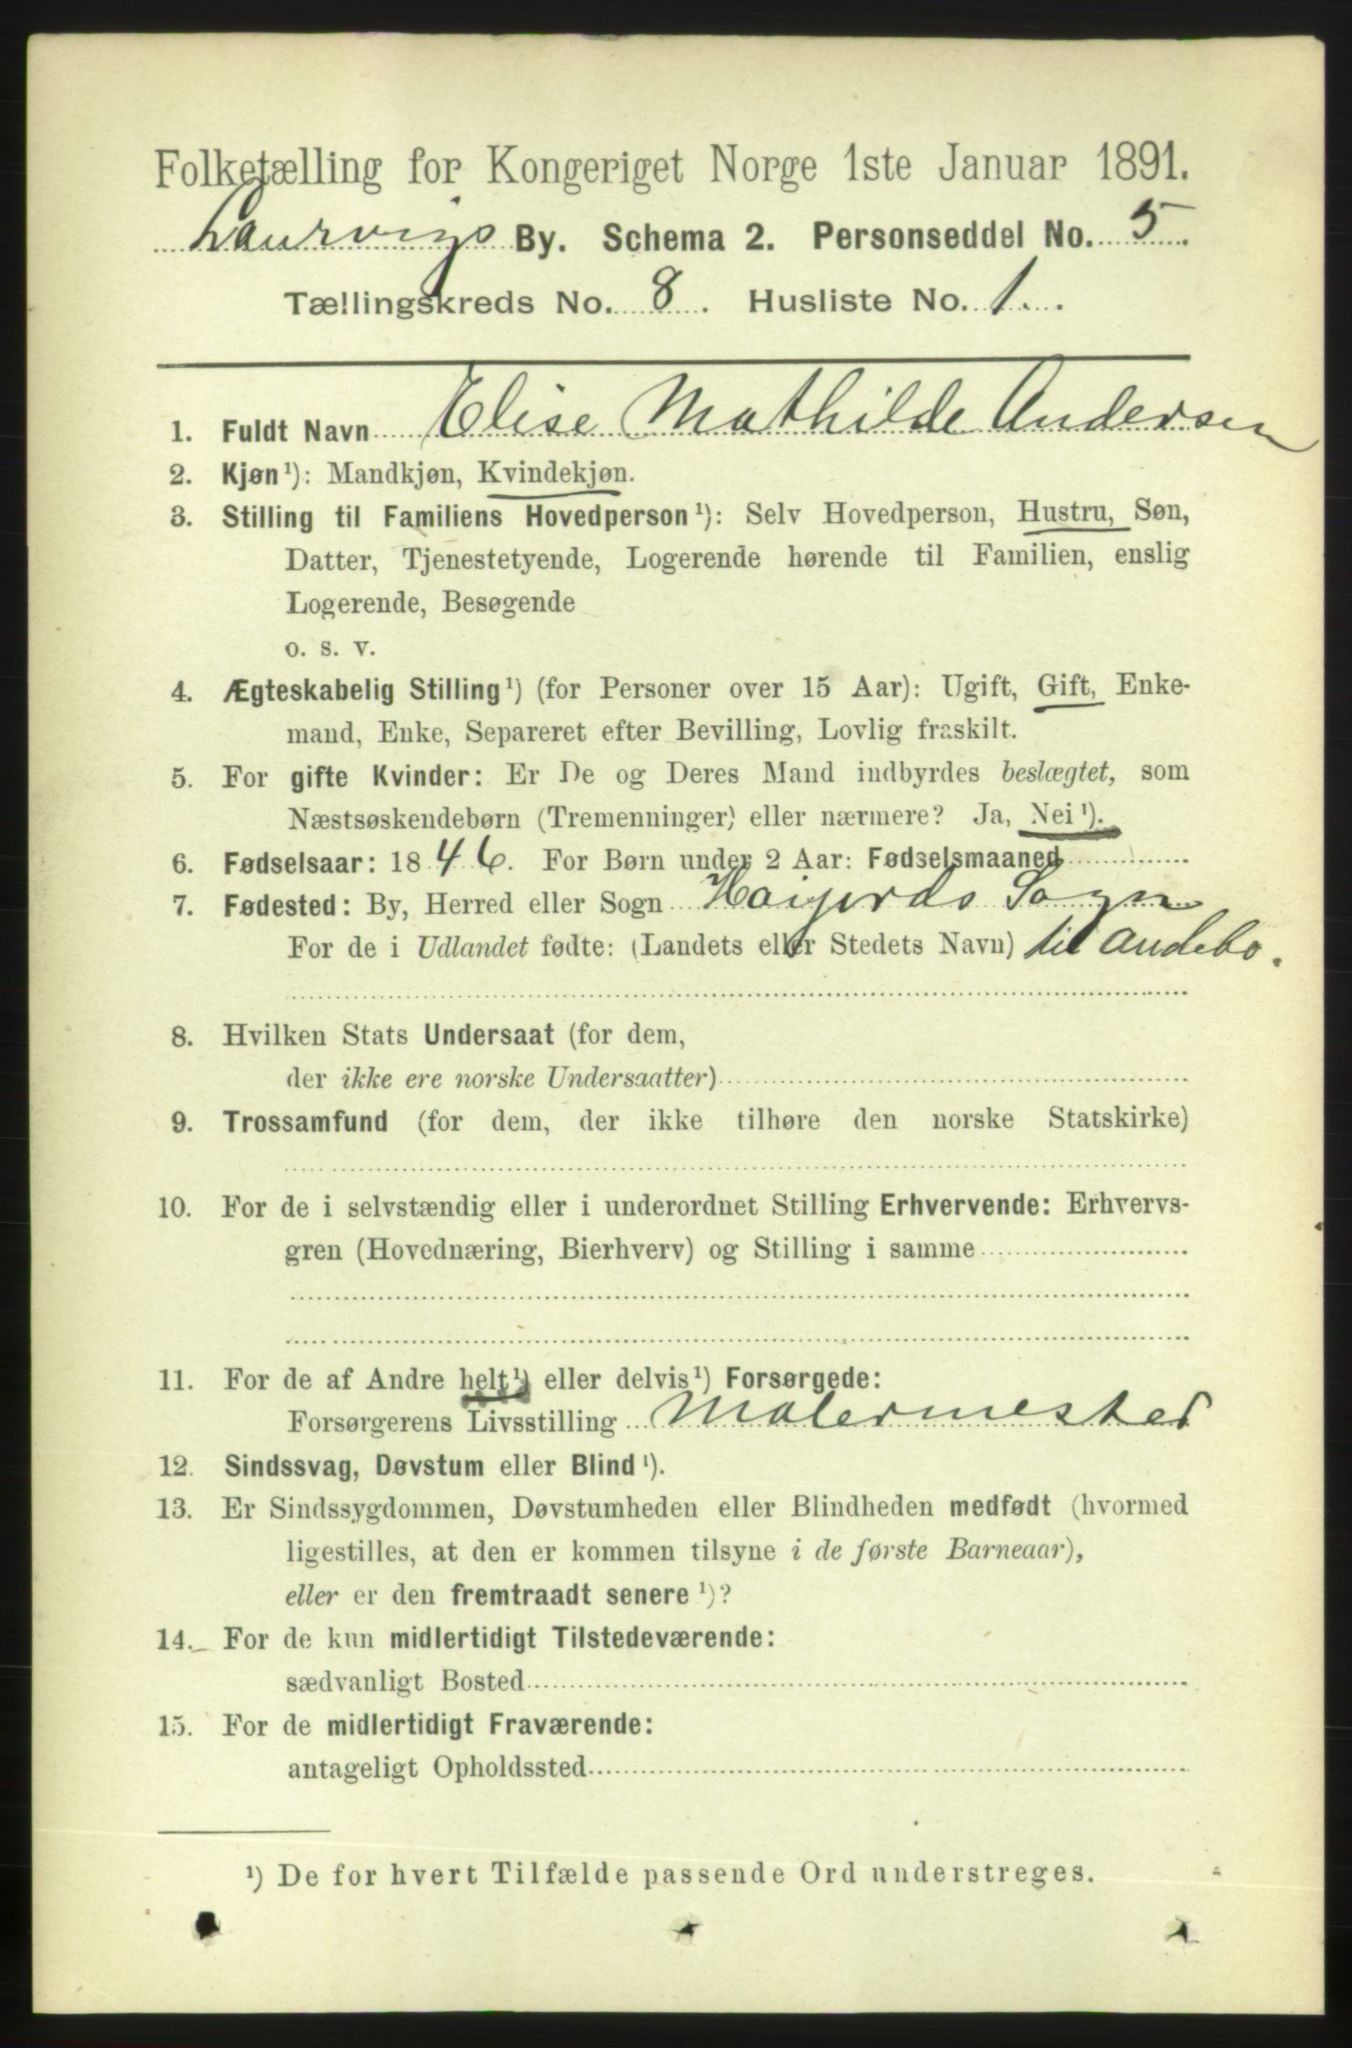 Folketælling for Kongeriget Norge 1ste Januar 1891.
Laurvigs By. Schema 2. Personseddel No. 5
Tællingskreds No. 8. Husliste No. 1.
1. Fuldt Navn Elise Mathilde Andersen
2. Kjøn¹): Mandkjøn, Kvindekjøn.
3. Stilling til Familiens Hovedperson¹): Selv Hovedperson, Hustru, Søn,
Datter, Tjenestetyende, Logerende hørende til Familien, enslig
Logerende, Besøgende
o. s. v.
4. Ægteskabelig Stilling¹) (for Personer over 15 Aar): Ugift, Gift, Enke-
mand, Enke, Separeret efter Bevilling, Lovlig fraskilt.
5. For gifte Kvinder: Er De og Deres Mand indbyrdes beslægtet, som
Næstsøskendebørn (Tremenninger) eller nærmere? Ja, Nei¹).
6. Fødselsaar: 1846. For Børn under 2 Aar: Fødselsmaaned
7. Fødested: By, Herred eller Sogn Høijords Sogn
For de i Udlandet fødte: (Landets eller Stedets Navn) til Andebo.
8. Hvilken Stats Undersaat (for dem,
der ikke ere norske Undersaatter)
9. Trossamfund (for dem, der ikke tilhøre den norske Statskirke)
10. For de i selvstændig eller i underordnet Stilling Erhvervende: Erhvervs-
gren (Hovednæring, Bierhverv) og Stilling i samme
11. For de af Andre helt¹) eller delvis¹) Forsørgede:
Forsørgerens Livsstilling Malermester
12. Sindssvag, Døvstum eller Blind¹).
13. Er Sindssygdommen, Døvstumheden eller Blindheden medfødt (hvormed
ligestilles, at den er kommen tilsyne i de første Barneaar),
eller er den fremtraadt senere¹)?
14. For de kun midlertidigt Tilstedeværende:
sædvanligt Bosted
15. For de midlertidigt Fraværende:
antageligt Opholdssted
¹) De for hvert Tilfælde passende Ord understreges.